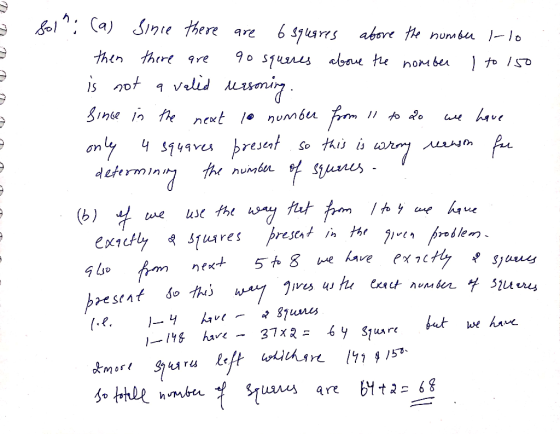 Solⁿ: (a) Since there are 6 squares above the number 1-10
then there are 90 squares above the number 1 to 150
is not a valid reasoning.
Since in the next 10 number from 11 to 20 we have
only 4 squares present so this is wrong reason for
determining the number of squares.
(b) if we use the way that from 1 to 4 we have
exactly 2 squares present in the given problem.
also from next 5 to 8 we have exactly 2 squares
present so this way gives us the exact number of squares
i.e. 1-4 have - 2 squares
1-148 have - 37x2 = 64 square but we have
2 more squares left which are 149 & 150.
So totall number of squares are 64+2 = 68